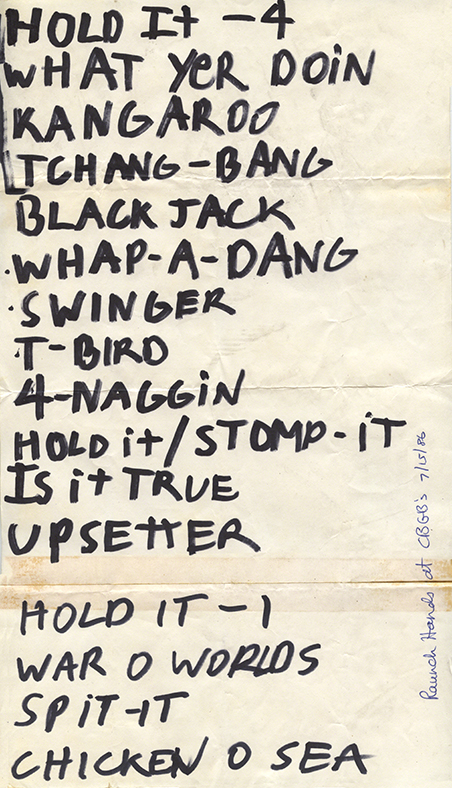 HOLD It -4
WHAT YER DOiN
KANGAROO
TCHANG-BANG
BLACK JACK
·WHAP-A-DANG
·SWINGER
·T-BIRD
4-NAGGiN
HOLD it/STOMP-iT
Is it TRUE
UPSETTER
HOLD IT -1
WAR O WORLDS
SPiT-IT
CHICKEN O SEA
Raunch Hands at CBGB's 7/15/86